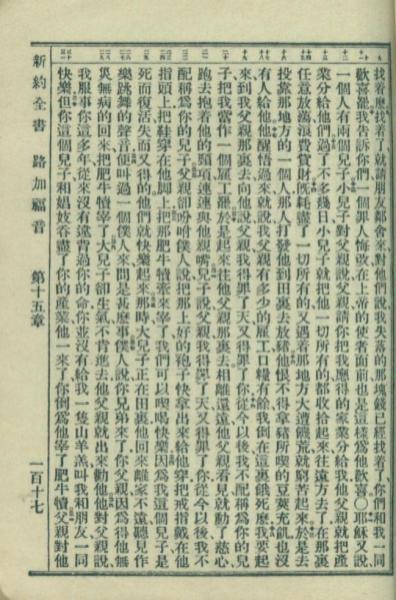 找着麽找着了就請朋友都舍來對他們說我失落的那塊錢已經找着了你們和我一同
歡喜罷我告訴你們一個罪人悔改在上帝的使者面前也是這樣爲他歡喜〇耶穌又說
一個人有兩個兒子小兒子對父親說父親請你把我應得的家業分給我他父親就把產
業分給他們過了不多幾日小兒子就把他一切所有的都收拾起來往遠方去了在那裏
任意放蕩浪費貲財旣耗盡了一切所有的又遇着那地方大遭饑荒就窮苦起來於是去
投靠那地方的一個人那人打發他到田裏去放豬他恨不得拿豬所喫的豆莢充飢也沒
有人給他他醒悟過來就說我父親有多少的雇工口糧有餘我倒在這裏餓死麽我要起
來到我父親那裏去向他說父親我得罪了天又得罪了你從今以後我不配稱爲你的兒
子把我當作一個雇工罷於是起來往他父親那裏去相離還遠他父親看見就動了慈心
跑去抱着他的頸項連連與他親嘴兒子說父親我得罪了天又得罪了你從今以後我不
配稱爲你的兒子父親卻吩咐僕人說把那上好的袍子快拿出來給他穿把戒指戴在他
指頭上把鞋穿在他脚上把那肥牛犢牽來宰了我們可以喫喝快樂因爲我這個兒子是
死而復活失而又得的他們就快樂起來那時大兒子正在田裏他回來離家不遠聽見作
樂跳舞的聲音便叫過一個僕人來問是甚麽事僕人說你兄弟來了你父親因爲得他無
災無病的回來把肥牛犢宰了大兒子卻生氣不肯進去他父親就出來勸他他對父親說
我服事你這多年從來沒有違背過你的命你並沒有給我一隻山羊羔叫我和朋友一同
快樂但你這個兒子和娼妓吞盡了你的產業他一來了你倒爲他宰了肥牛犢父親對他
新約全書 路加福音 第十五章 一百十七